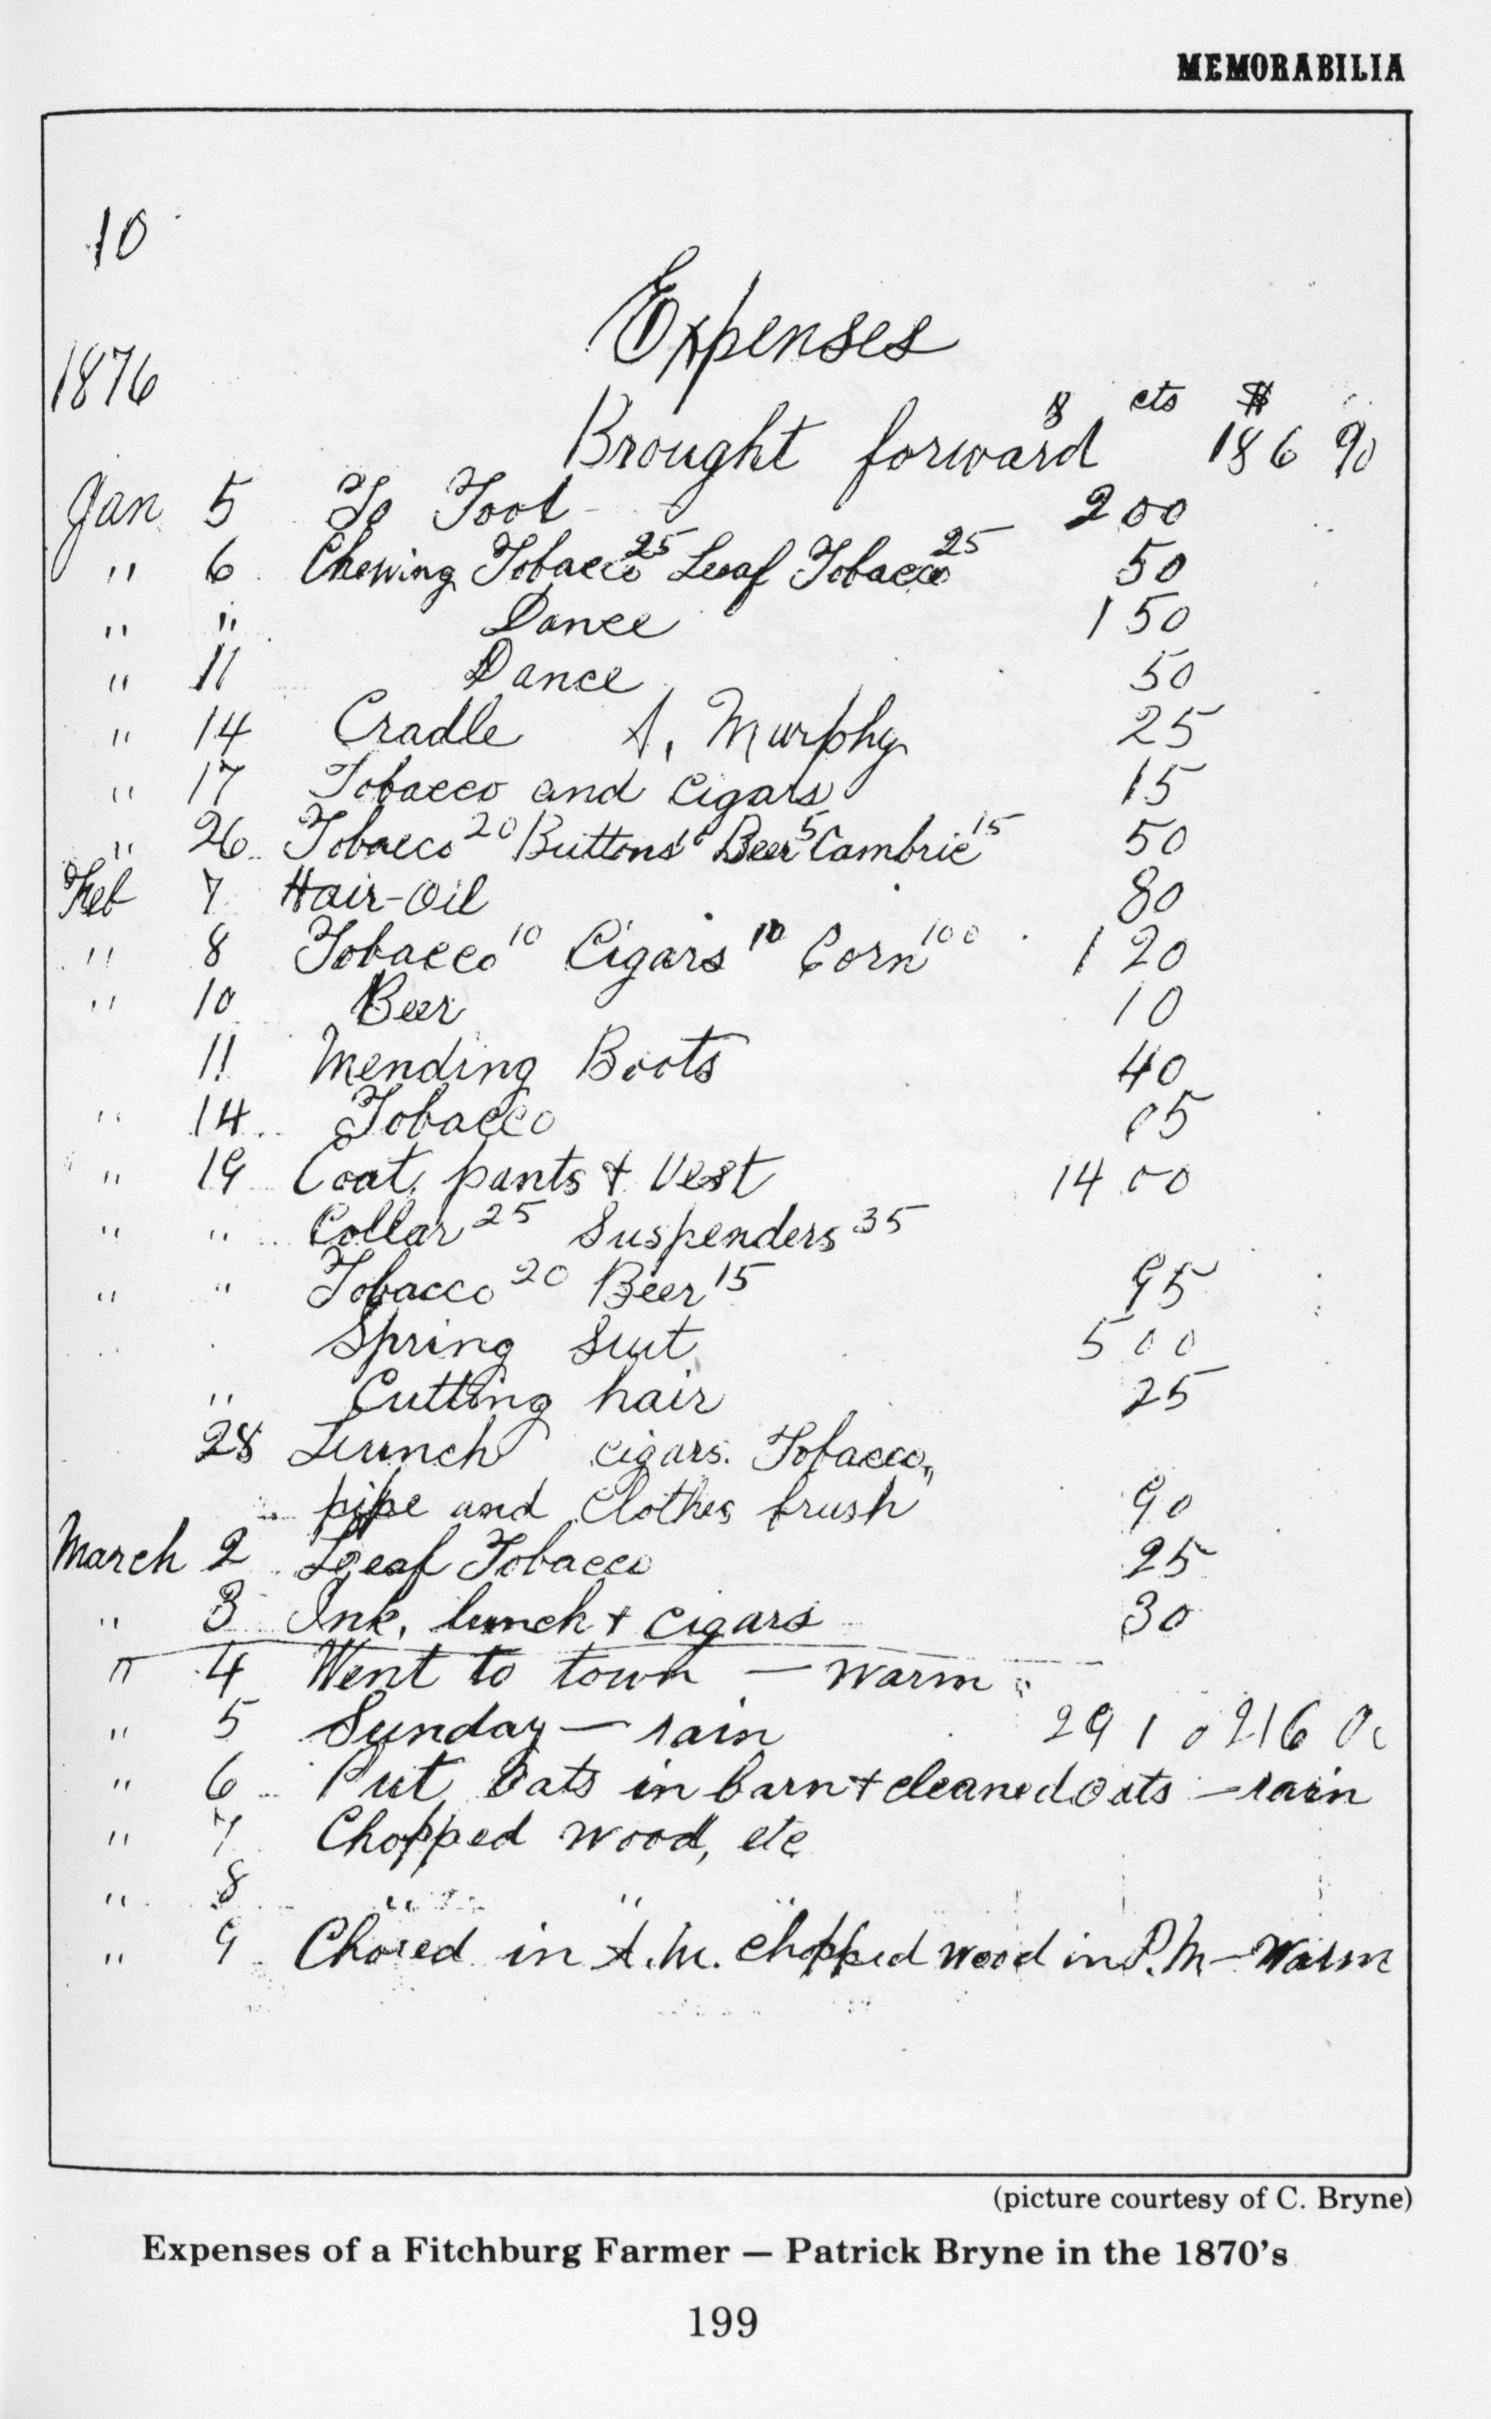 MEMORABILIA
10
Expenses
1876
$ cts $
Brought forward 186 90
Jan 5 To Toot 2 00
" 6 Chewing Tobacco 25 Leaf Tobacco 25 50
" " Dance 1 50
" 11 Dance 50
" 14 Cradle A. Murphy 25
" 17 Tobacco and Cigars 15
" 26 Tobacco 20 Buttons 10 Beer 5 Cambric 15 50
Feb 7 Hair-Oil 80
" 8 Tobacco 10 Cigars 10 Corn 100 1 20
" 10 Beer 10
11 Mending Boots 40
" 14 Tobacco 05
" 19 Coat, pants + Vest 14 00
" " Collar 25 Suspenders 35
" " Tobacco 20 Beer 15 95
Spring Suit 5 00
" Cutting hair 25
28 Lunch cigars. Tobacco,
pipe and Clothes brush 90
March 2 Leaf Tobacco 25
" 3 Ink, lunch + cigars 30
" 4 Went to town — warm
" 5 Sunday — rain 29 10 216 00
" 6 Put Oats in barn + cleaned oats — rain
" 7 Chopped wood, etc
" 8 " " "
" 9 Chored in A.M. chopped wood in P.M — Warm
(picture courtesy of C. Bryne)
Expenses of a Fitchburg Farmer — Patrick Bryne in the 1870's
199